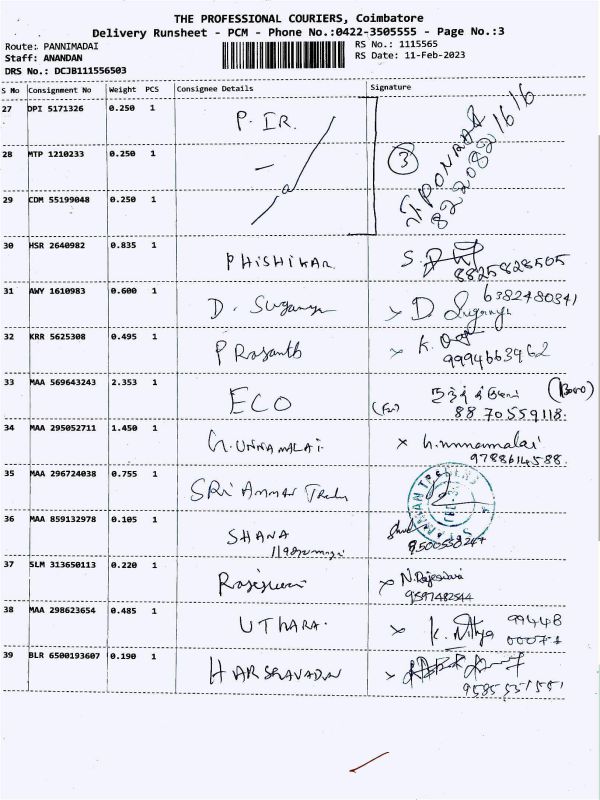 THE PROFESSIONAL COURIERS, Coimbatore
Delivery Runsheet - PCM - Phone No.:0422-3505555 - Page No.:3
Route: PANNIMADAI
RS No.: 1115565
Staff: ANANDAN
RS Date: 11-Feb-2023
DRS No.: DCJB111556503
S No Consignment No Weight PCS Consignee Details Signature
27 DPI 5171326 0.250 1 P. IR.
28 MTP 1210233 0.250 1 3 8220821616
29 CDM 55199048 0.250 1
30 HSR 2640982 0.835 1 PHISHIKAR S.
8825828505
31 AWY 1610983 0.600 1 D. Suganya D Suganya
6382480341
32 KRR 5625308 0.495 1 PRasanth K.
9994663962
33 MAA 569643243 2.353 1 ECO
8870559118.
34 MAA 295052711 1.450 1 h. UNNAMALAI. × h.unnamalai
9788614588.
35 MAA 296724038 0.755 1 SRI Amman
36 MAA 859132978 0.105 1 SHANA
37 SLM 313650113 0.220 1 Rajeswari × N.Rajeswari
9597482544
38 MAA 298623654 0.485 1 UTHARA. × K. Nithya 99448
00071
39 BLR 6500193607 0.190 1 HARSHAVADAN
9585551551